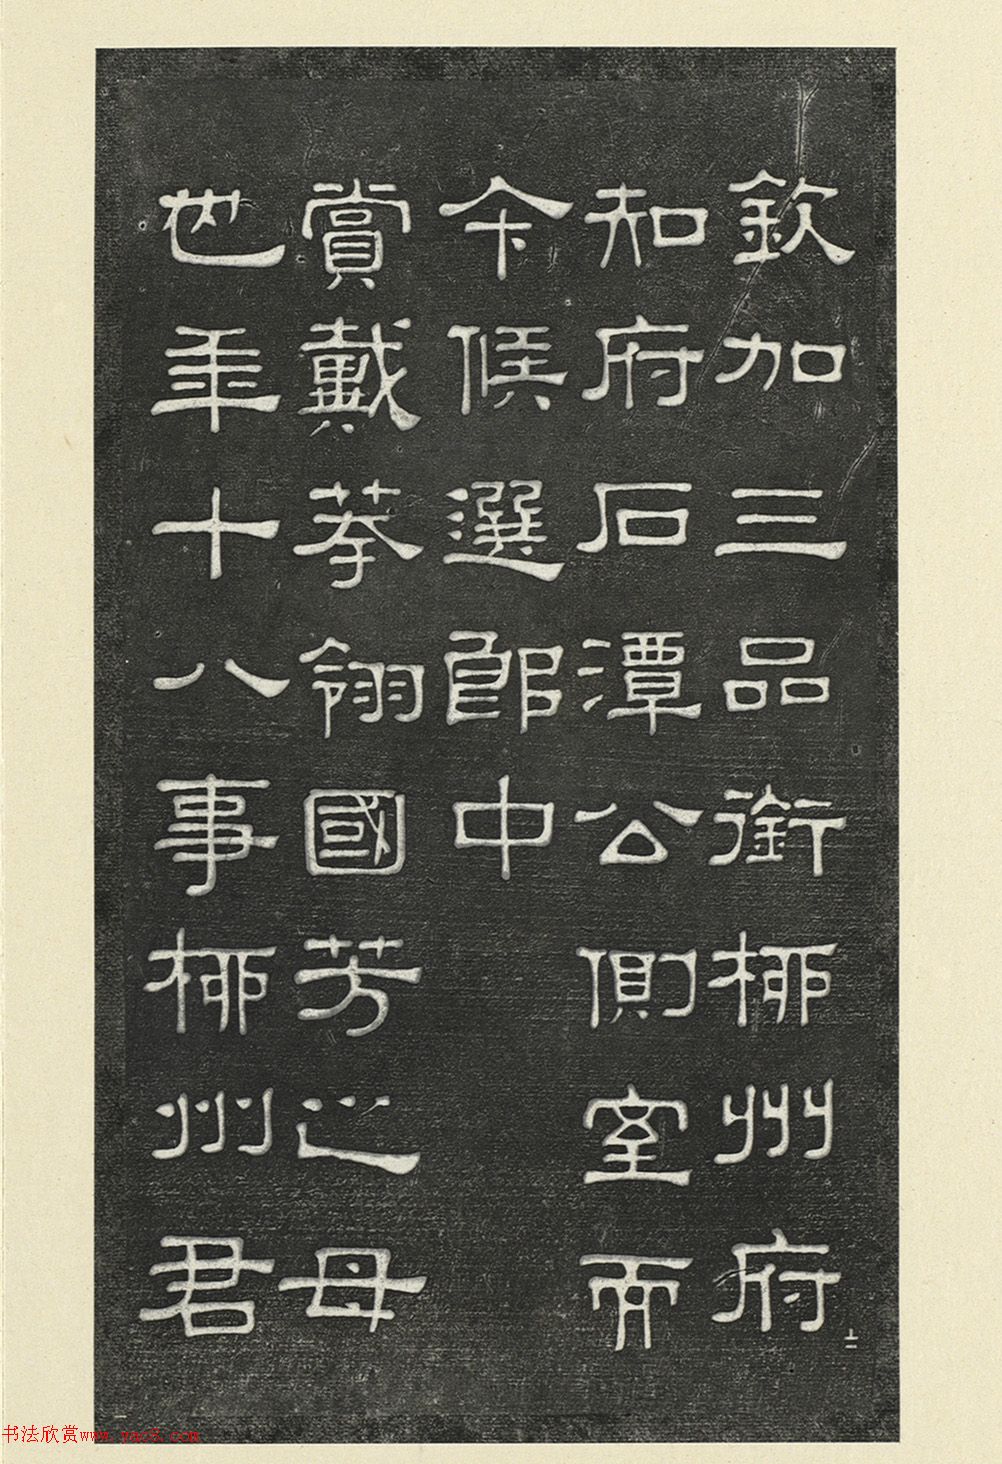 欽加三品銜柳州府
知府石潭公側室而
今候選郎中
賞戴孝翎國芳之母
也年十八事柳州君
上一
书法欣赏www.yac8.com